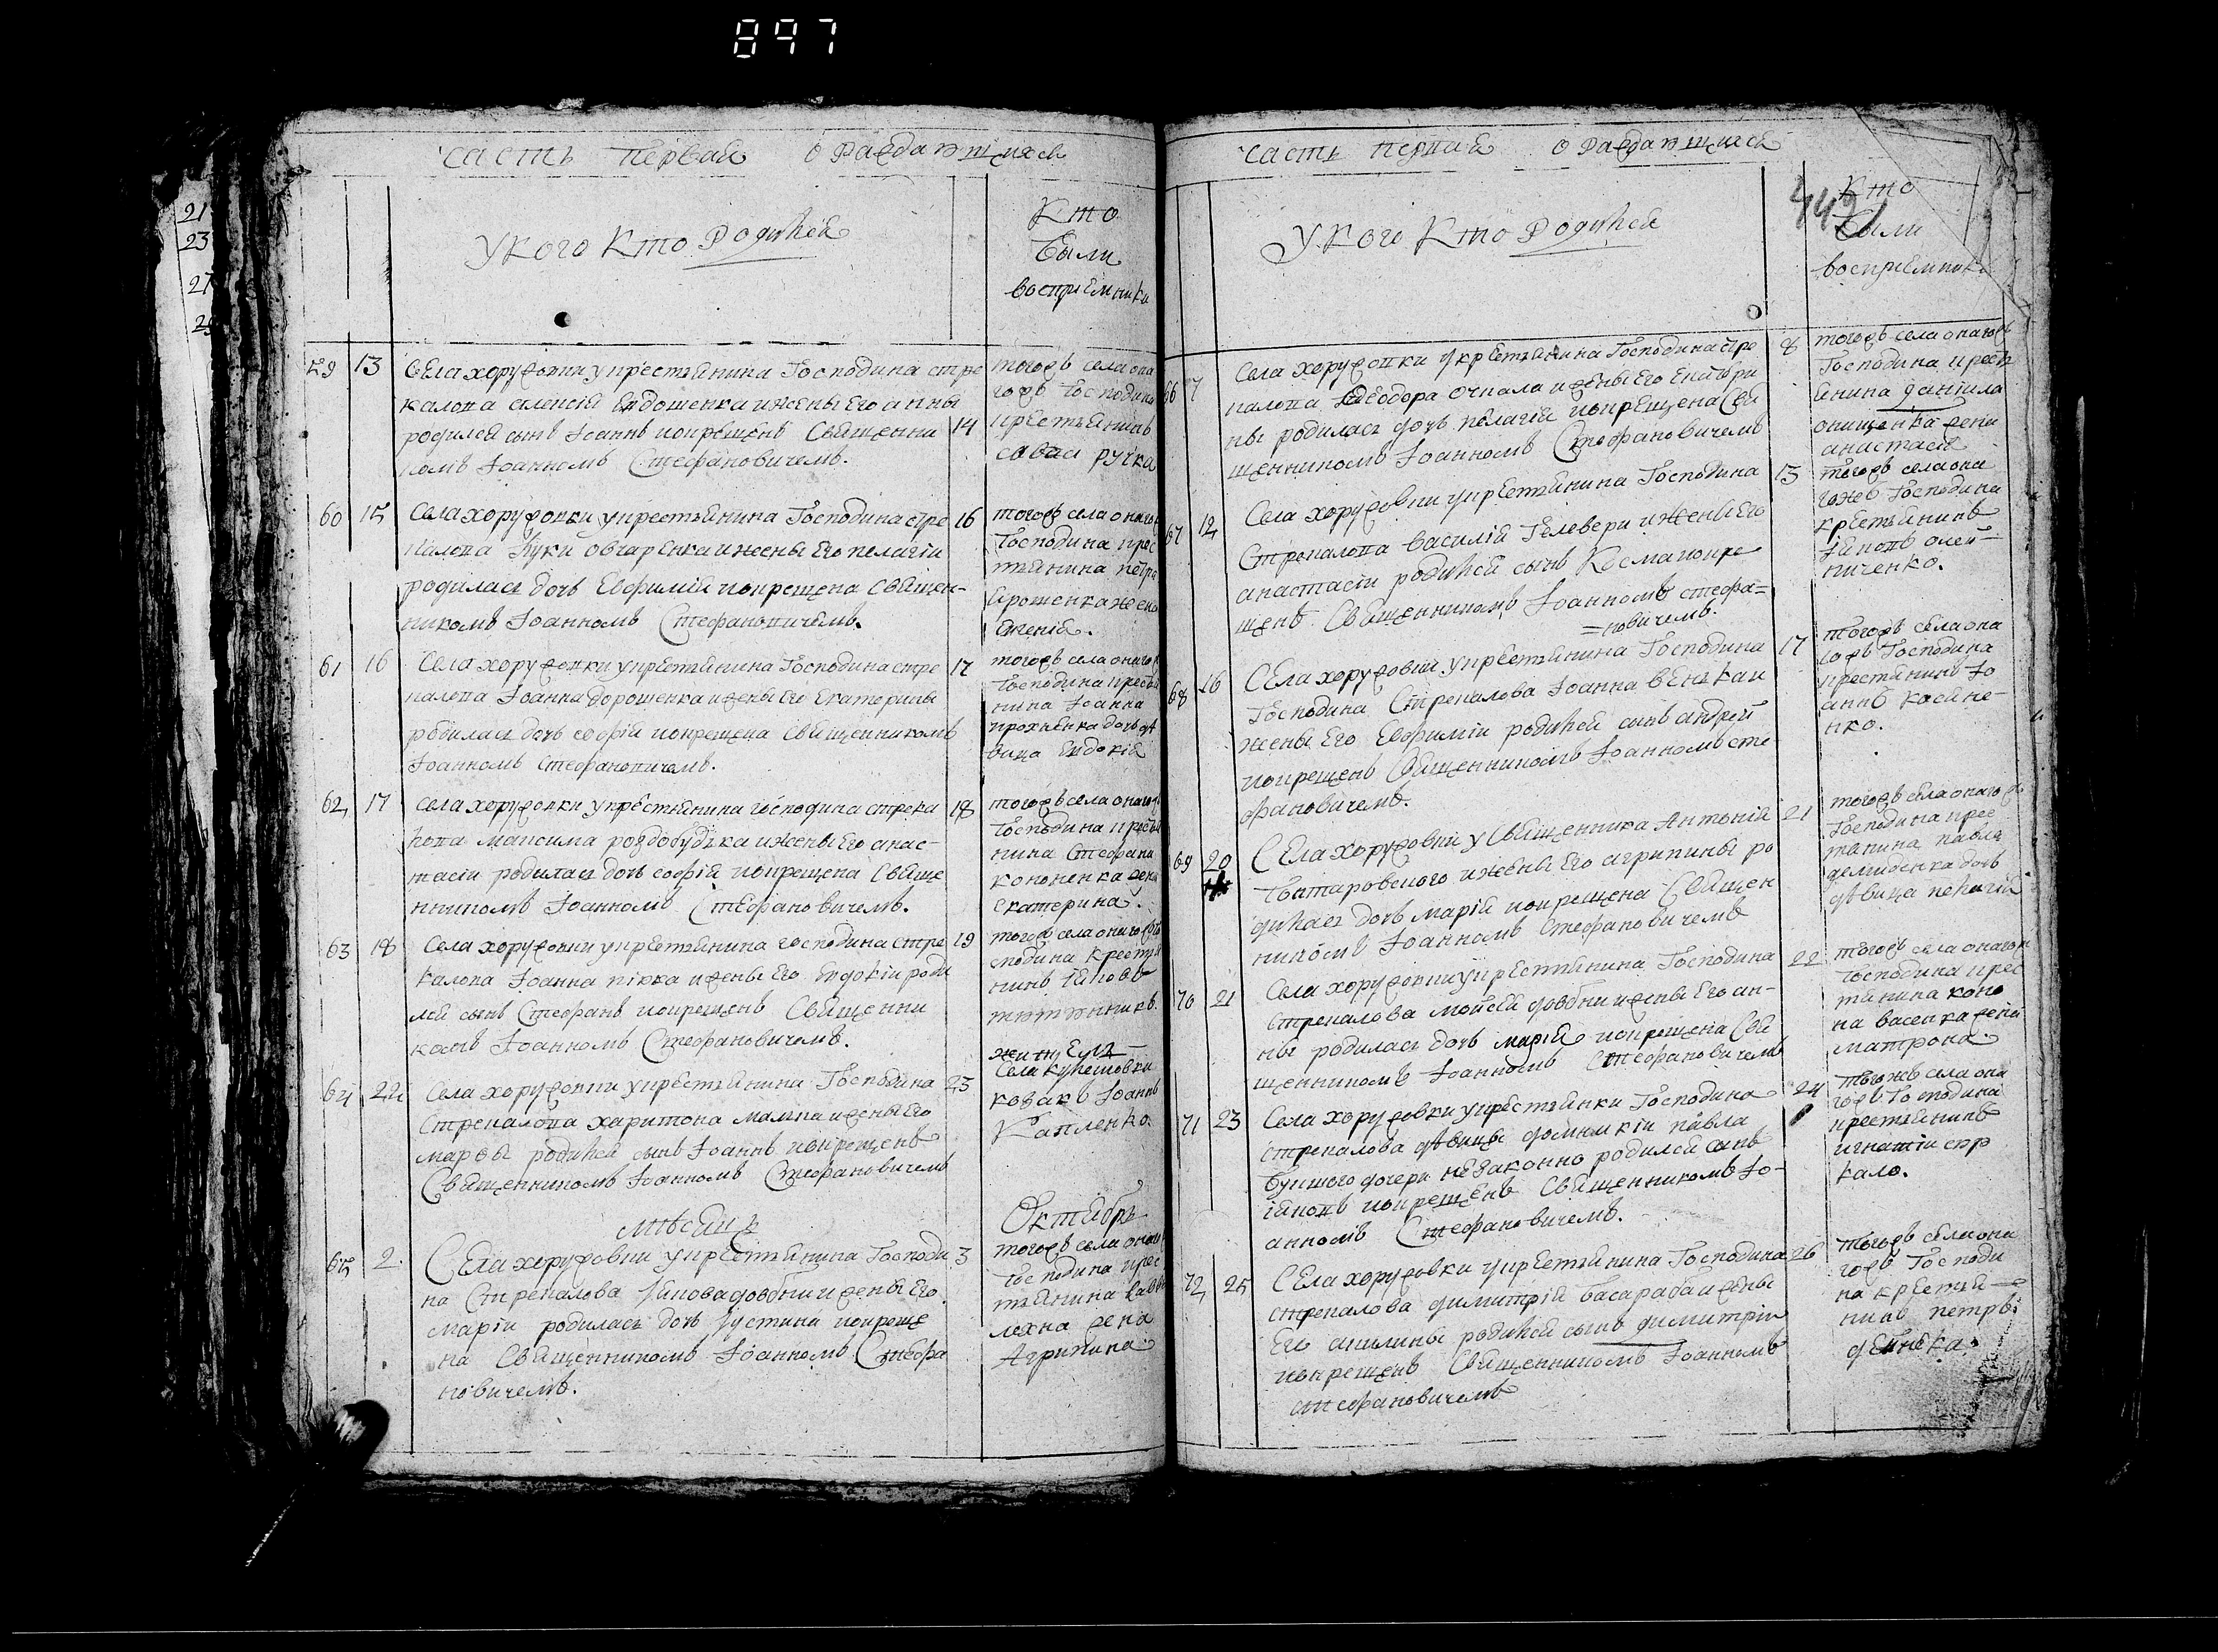 897
21
23
27
29
часть первая о раждающихся
У кого Кто родился
Кто
были
восприемники
59 13 Села хоружовки у крестьянина Господина стре
калова алексія Евдошенка и жены Его анны
родился сынъ Іоаннъ и окрещенъ Священни
комъ Іоанномъ Стефановичемъ.
14 тогожъ села она
гожъ Господина
крестьянинъ
савва ручка
60 15 Села хоружовки у крестьянина Господина стре
калова Луки овчаренка и жены Его пелагіи
родилась дочь Евфимія и окрещена Священ-
никомъ Іоанномъ Стефановичемъ.
16 тогожъ села онагожъ
Господина крес
тьянина петра
Ярошенка жена

61 16 Села хоружовки у крестьянина Господина стре
калова Іоанна дорошенка и жены Его Екатерины
родилась дочь софія и окрещена Священникомъ
Іоанномъ Стефановичемъ.
17 тогожъ села онагожъ
Господина крестья
нина Іоанна
прохненка дочь дѣ
вица Евдокія
62 17 Села хоружовки у крестьянина господина стрека
лова максима роздобудька и жены Его анас-
тасіи родилась дочь софія и окрещена Свяще
нникомъ Іоанномъ Стефановичемъ.
18 тогожъ села онагожъ
Господина крестья
нина Стефана
кононенка жена
Екатерина.
63 18 Села хоружовки у крестьянина господина стре
калова Іоанна пікка и жены Его Евдокіи роди
лся сынъ Стефанъ и окрещенъ Священни
комъ Іоанномъ Стефановичемъ.
19 тогожъ села онагожъ Го
сподина крестья
нинъ Іаковъ
тютюнникъ.
64 22 Села хоружовки у крестьянина Господина
Стрекалова харитона мампа и жены Его
марѳы родился сынъ Іоаннъ и окрещенъ
Священникомъ Іоанномъ Стефановичемъ
23 жит
Села
козакъ Іоаннъ
Капленко.
мѣсяцъ Октябрь
65 2. Села хоружовки у крестьянина Господи
на Стрекалова Іакова довбни и жены Его
маріи родилась дочь Іустина и окреще
на Священникомъ Іоанномъ Стефа
новичемъ.
3 тогожъ села онагожъ
Господина крес
тьянина саввы
лехна жена
Агрипина.
часть первая о раждающихся
442
У кого Кто родился
Кто
были
восприемники
66 7 Села хоружовки у крестьянина Господина стре
калова Феодора очкала и жены Его Екатери
ны родилась дочь пелагія и окрещена Свя
щенникомъ Іоанномъ Стефановичемъ
8 тогожъ села онагожъ
Господина крест
янина даніила
онищенка жена
анастасія
67 12 Села хоружовки у крестьянина Господина
Стрекалова василія Гелевери и жены Его
анастасіи родился сынъ Косма и окре
щенъ Священникомъ Іоанномъ стефа=
=новичемъ.
13 тогожъ села она
гожъ Господина
крестьянинъ
Іаковъ олей=
ниченко.
68 16 Села хоружовки у крестьянина Господина
Господина Стрекалова Іоанна венжка и
жены Его Евфиміи родился сынъ андрей
и окрещенъ Священникомъ Іоанномъ сте
фановичемъ.
17 тогожъ села она
гожъ Господина
крестянинъ Іо
аннъ касяне-
нко.
69 20 Села хоружовки у Священника Антонія
Татаровского и жены Его агрипины ро
дилась дочь марія и окрещена Священ
никомъ Іоанномъ Стефановичемъ
21 тогожъ села онагожъ
Господина крес
тянина павла
демиденка дочь
дѣвица пелагія
70 21 Села хоружовки у крестьянина Господина
стрекалова мойсея довбни и жены Его ан-
ны родилась дочь марія и окрещена Свя
щенникомъ Іоанномъ Стефановичемъ
22 тогожъ села онагожъ
Господина крес
тянина коно
на васенка жена
матрона.
71 23 Села хоружовки у крестьянки Господина
стрекалова дѣвицы домникіи павла
дочери незаконно родился сынъ
Іаковъ и окрещенъ Священникомъ Іо-
анномъ Стефановичемъ.
24 тогожъ села она
гожъ Господина
крестьянинъ
игнатіи скр
кало.
72 25 Села хоружовки у крестьянина Господина
стрекалова димитрія басараба и жены
Его акилины родился сынъ димитріи
и окрещенъ Священникомъ Іоанномъ
стефановичемъ
26 тогожъ села она
гожъ Господи
на крестья
нинъ петръ
дейнека.